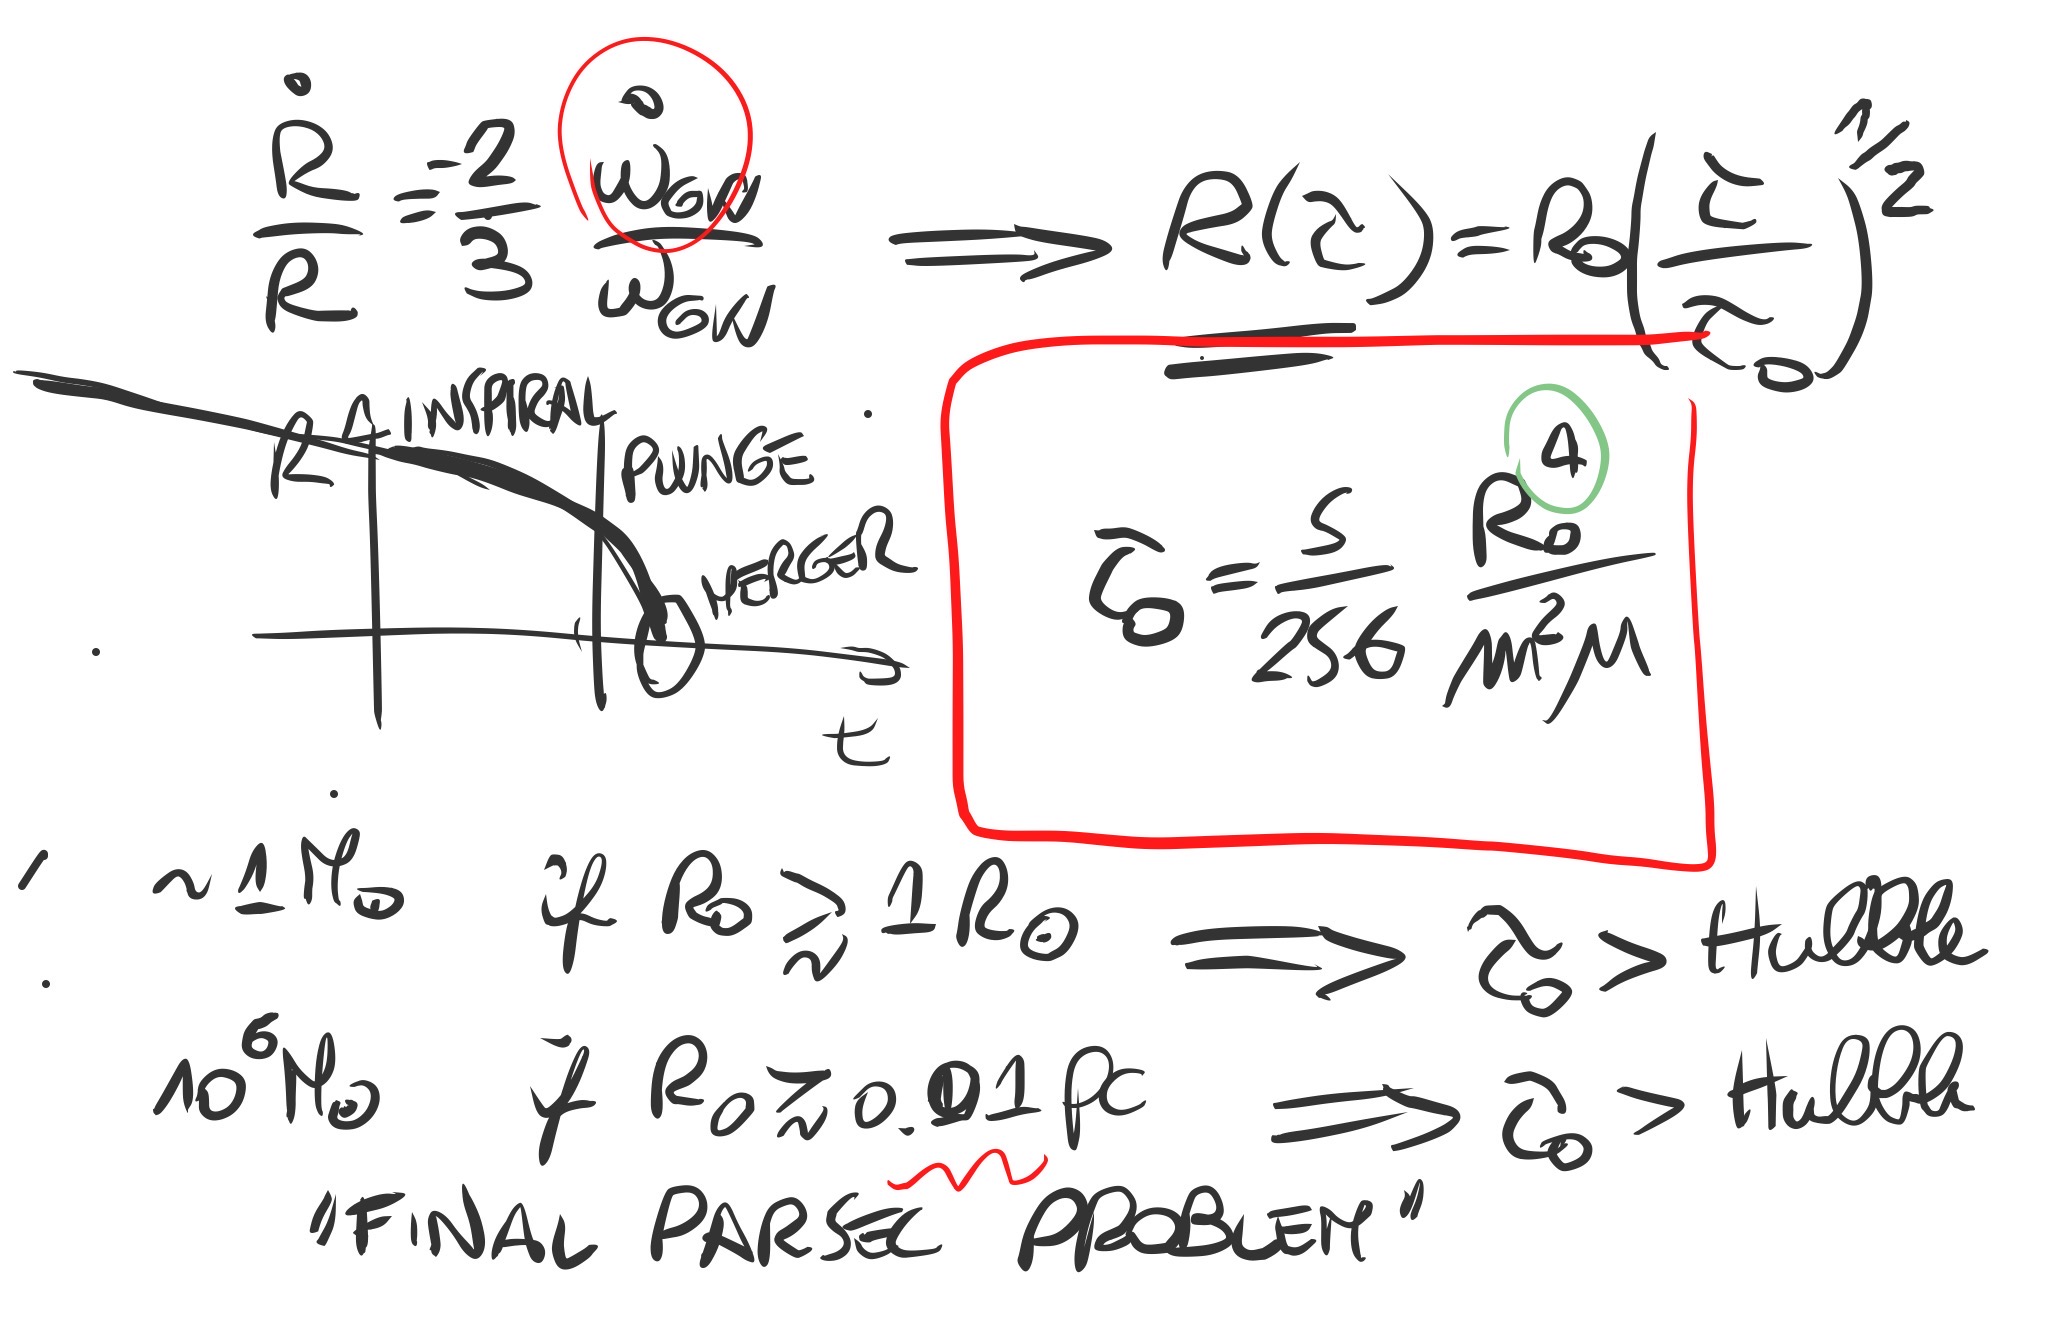 Ṙ/R = -2/3 ω̇_GW/ω_GW ⟹ R(τ) = R₀(τ/τ₀)^1/2
R INSPIRAL
PLUNGE
MERGER
t
τ₀ = 5/256 R₀⁴/m²μ
~1 M⊙ if R₀ ≳ 1 R⊙ ⟹ τ₀ > Hubble
10⁶ M⊙ if R₀ ≳ 0.01 pc ⟹ τ₀ > Hubble
"FINAL PARSEC PROBLEM"